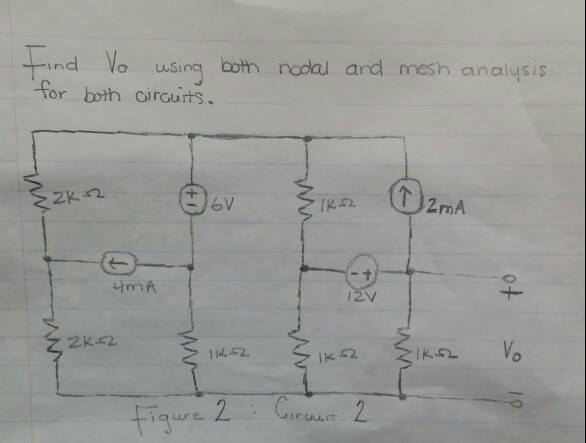 Find Vo using both nodal and mesh analysis
for both circuits.
2KΩ
+
-
6V
1KΩ
2mA
4mA
- +
12V
+
2KΩ
1KΩ
1KΩ
1KΩ
Vo
-
Figure 2 : Circuit 2